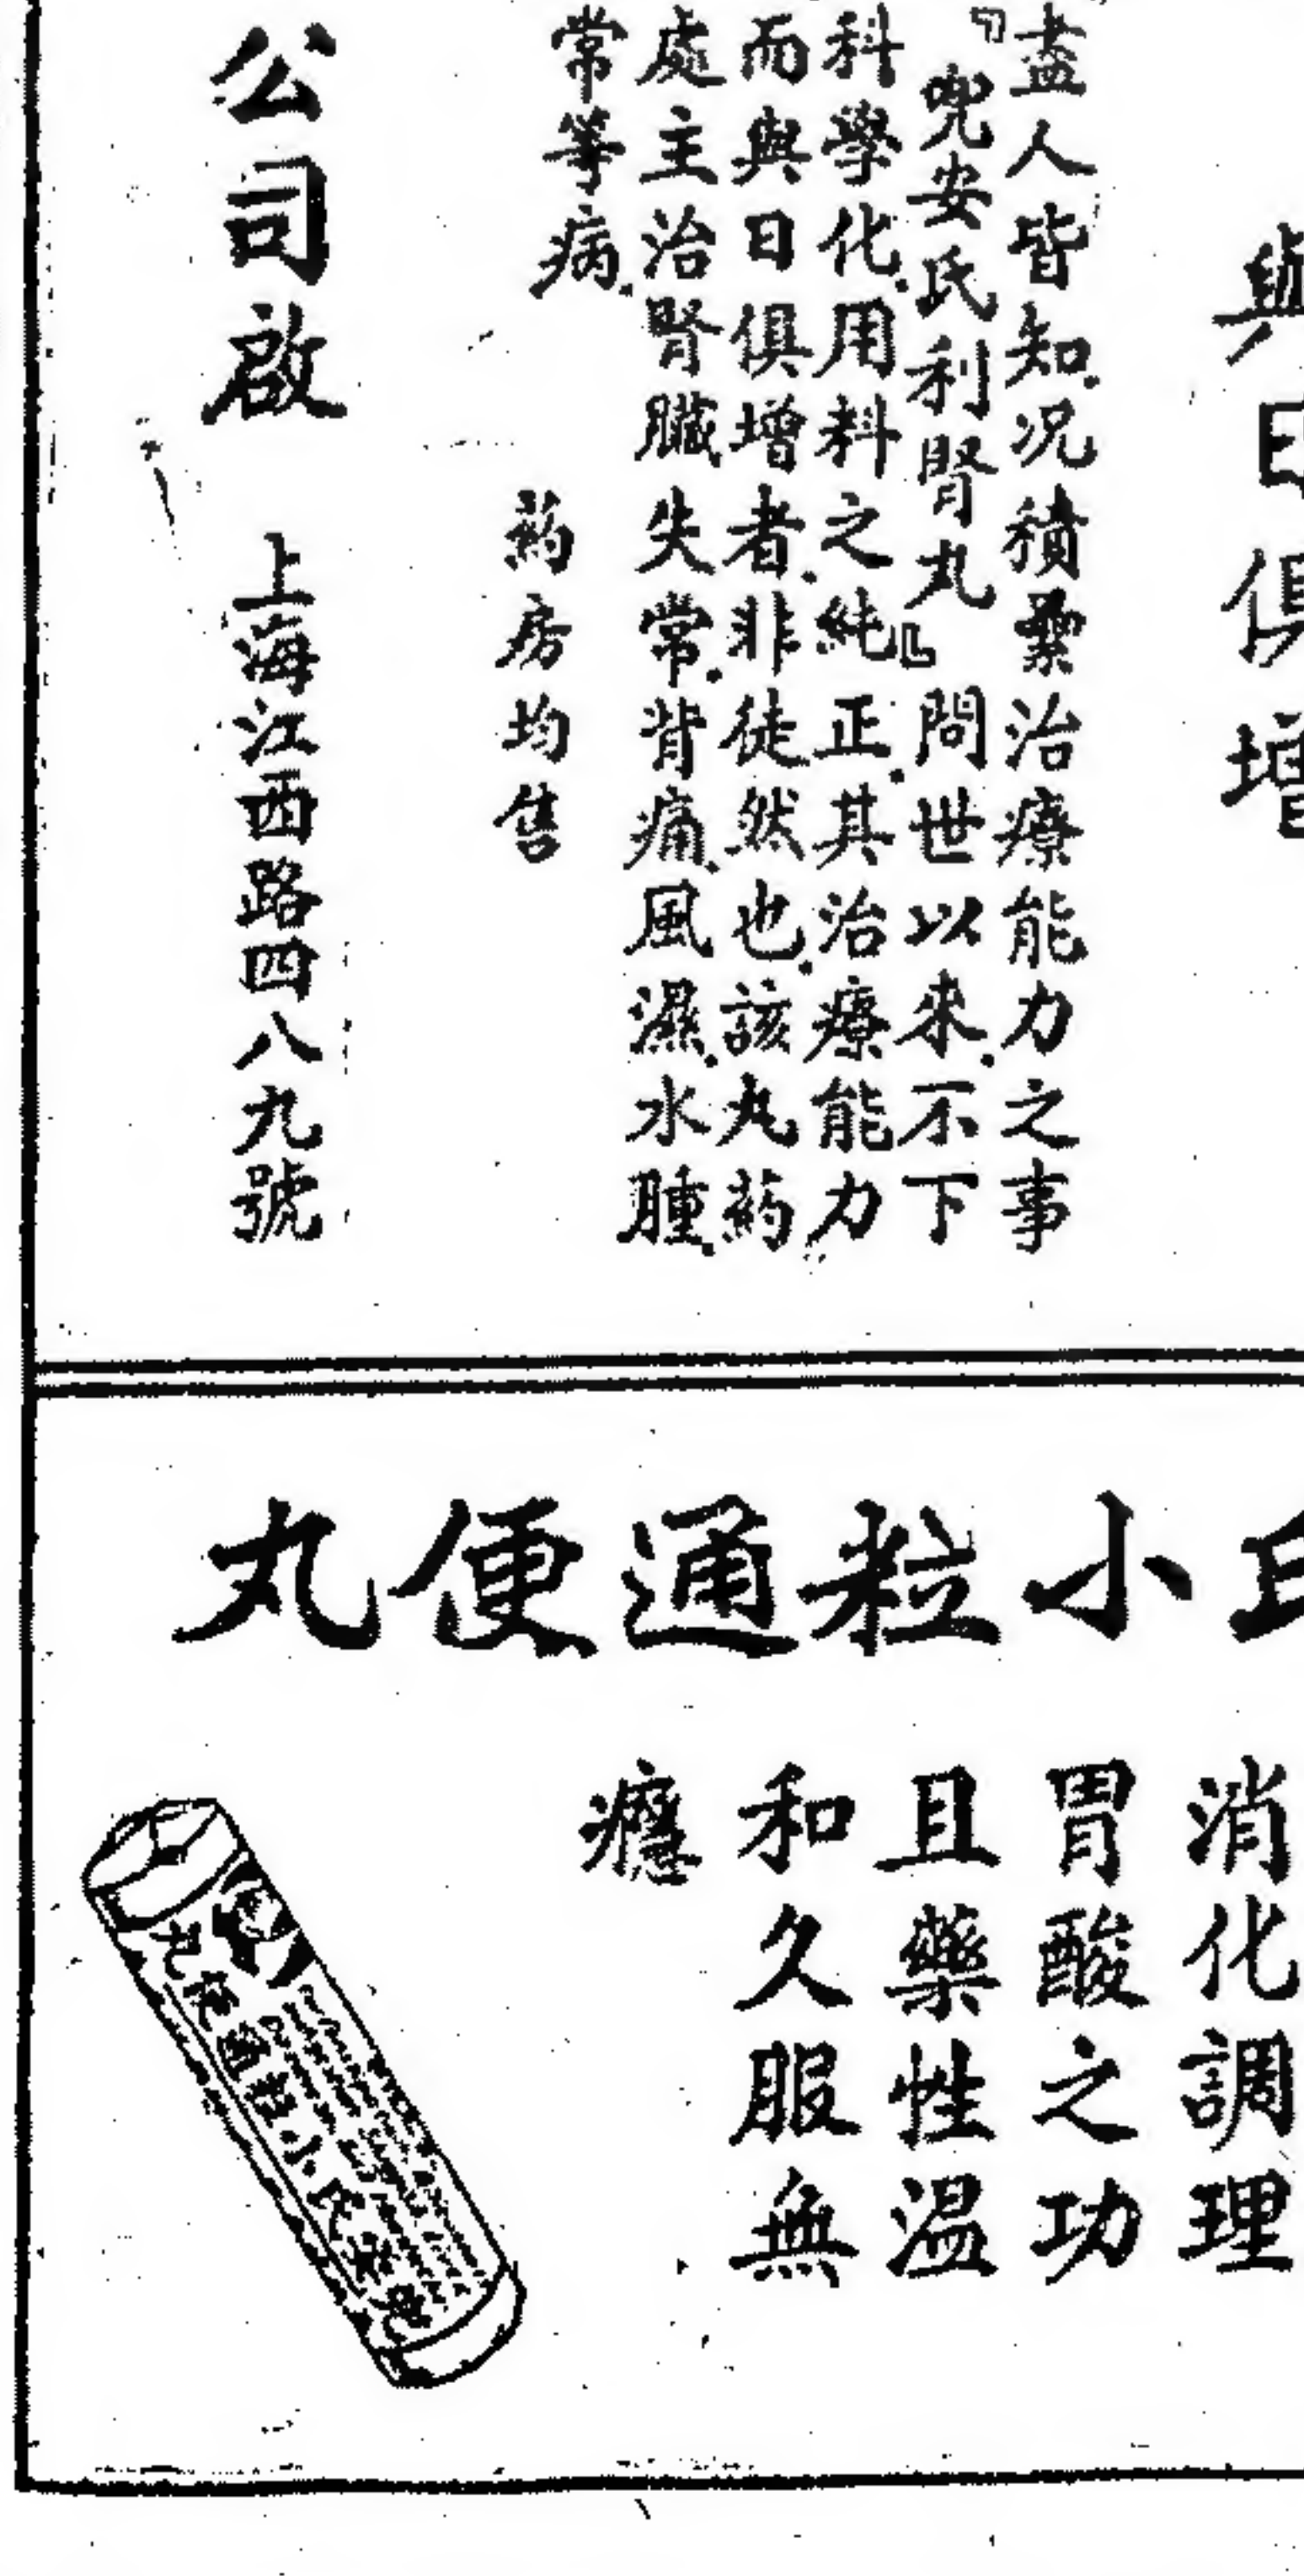 與日俱增
盡人皆知.況積纍治療能力之事
『兜安氏利腎丸』問世以來.不下
科學化.用料之純正.其治療能力
而與日俱增者.非徒然也.該丸葯
處主治腎臟失常.背痛.風濕.水腫.
常等病.
葯房均售
公司啟 上海江西路四八九號
氏小粒通便丸
消化調理
胃酸之功
且藥性溫
和久服無
癮